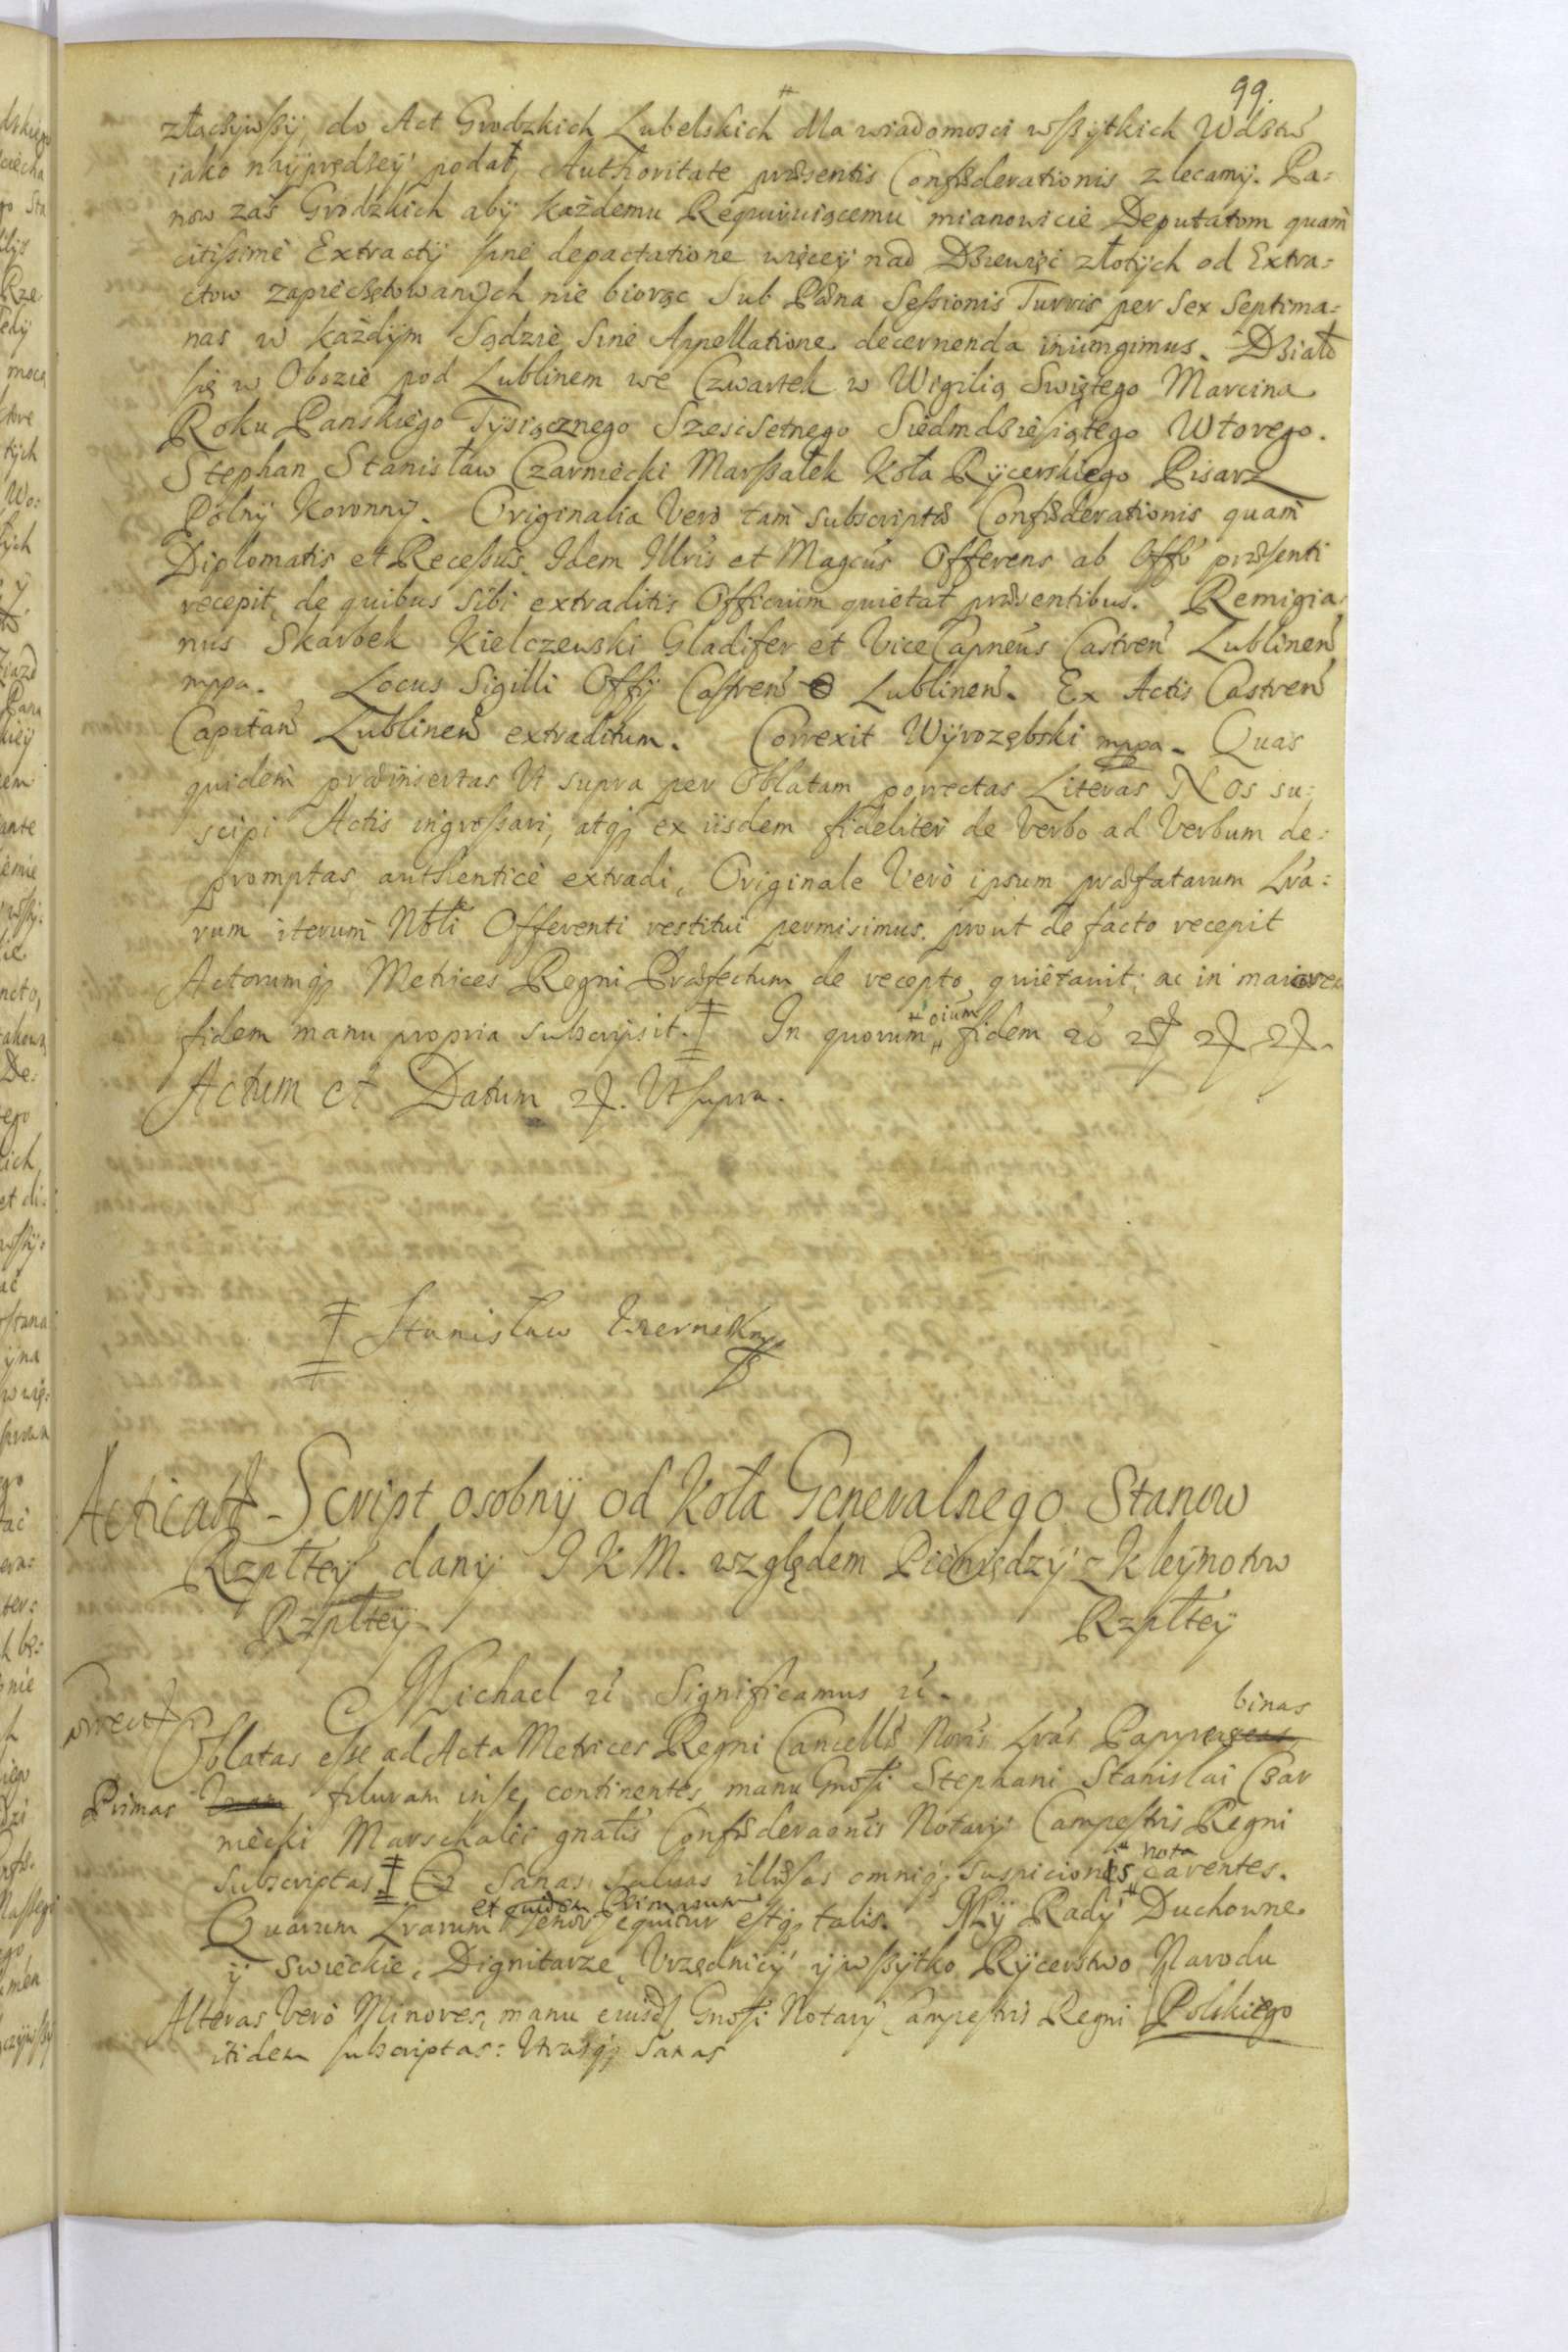 99.
złączywszy, do Act Grodzkich Lubelskich dla wiadomosci wszytkich Wdztw
iako nayprędzey podał, Authoritate præsentis Confæderationis zlecamy. Pa:
now zaś Grodzkich aby każdemu Requiruiącemu mianowicie Deputatom quam
citissimè Extracty sine depactatione więcey nad Dziewięć złotych od Extra:
ctow zapieczętowanych nie biorąc sub Pæna Sessionis Turris per sex septima:
nas w każdym Sądzie sine Appellatione decernenda iniungimus. Działo
się w Obozie pod Lublinem we Czwartek w Wigilią Swiętego Marcina
Roku Panskiego Tysiącznego Szescsetnego Siedmdziesiątego Wtorego.
Stephan Stanisław Czarniecki Marszałek Koła Rycerskiego Pisarz
Polny Koronny. Originalia Verò tam subscriptæ Confæderationis quam
Diplomatis et Recessus Idem Illris et Magcus Offerens ab Offo præsenti
recepit, de quibus sibi extraditis Officium quietat præsentibus. Remigia:
nus Skarbek Kielczewski Gladifer et ViceCapneus Castren Lublinen
mppa. Locus Sigilli Offy Castren Lublinen. Ex Actis Castren
Capitan Lublinen extraditum. Correxit Wyrozębski mppa. Quas
quidem præinsertas Ut supra per Oblatam porrectas Literas Nos su:
scipi Actis ingrossari, atq ex iisdem fideliter de Verbo ad Verbum de:
promptas authenticè extradi, Originale Verò ipsum præfatarum Lra:
rum iterum Nbli Offerenti restitui permisimus. prout de facto recepit
Actorumq Metrices Regni Præfectum de recepto quietavit; ac in maiorem
fidem manu propria subscripsit. In quorum oium fidem
Actum et Datum Ut supra.
Stanisław
Acticatæ Script osobny od Koła Generalnego Stanow
Rzpltey dany J K M. względem Pieniędzy z Kleynotow
Rzpltey Rzpltey
Michael Significamus
binas
Oblatas esse ad Acta Metrices Regni Cancellæ Noræ Lras Papyreas
Primas filuram in se continentes, manu Gnosi Stephani Stanislai Czar
niecki Marschalci gnalis Confæderaonis Notary Campestris Regni
nota
subscriptas sanas salvas illæsas omniq suspicionis carentes.
et quidem Primarum
Quarum Lrarum tenor sequitur estq talis. My Rady Duchowne
y swieckie, Dignitarze, Urzędnicy y wszytko Rycerstwo Narodu
Alteras Verò Minores, manu eiusd Gnosi Notary Campestris Regni Polskiego
itidem subscriptas: Utrasq sanas